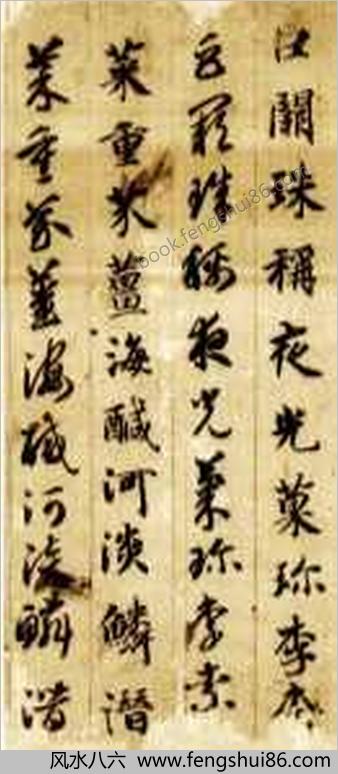 巨闕珠稱夜光菓珍李柰
巨闕珠稱夜光菓珍李柰
菜重芥薑海鹹河淡鱗潛
菜重芥薑海鹹河淡鱗潛
book.fengshui86.com
风水八六 www.fengshui86.com